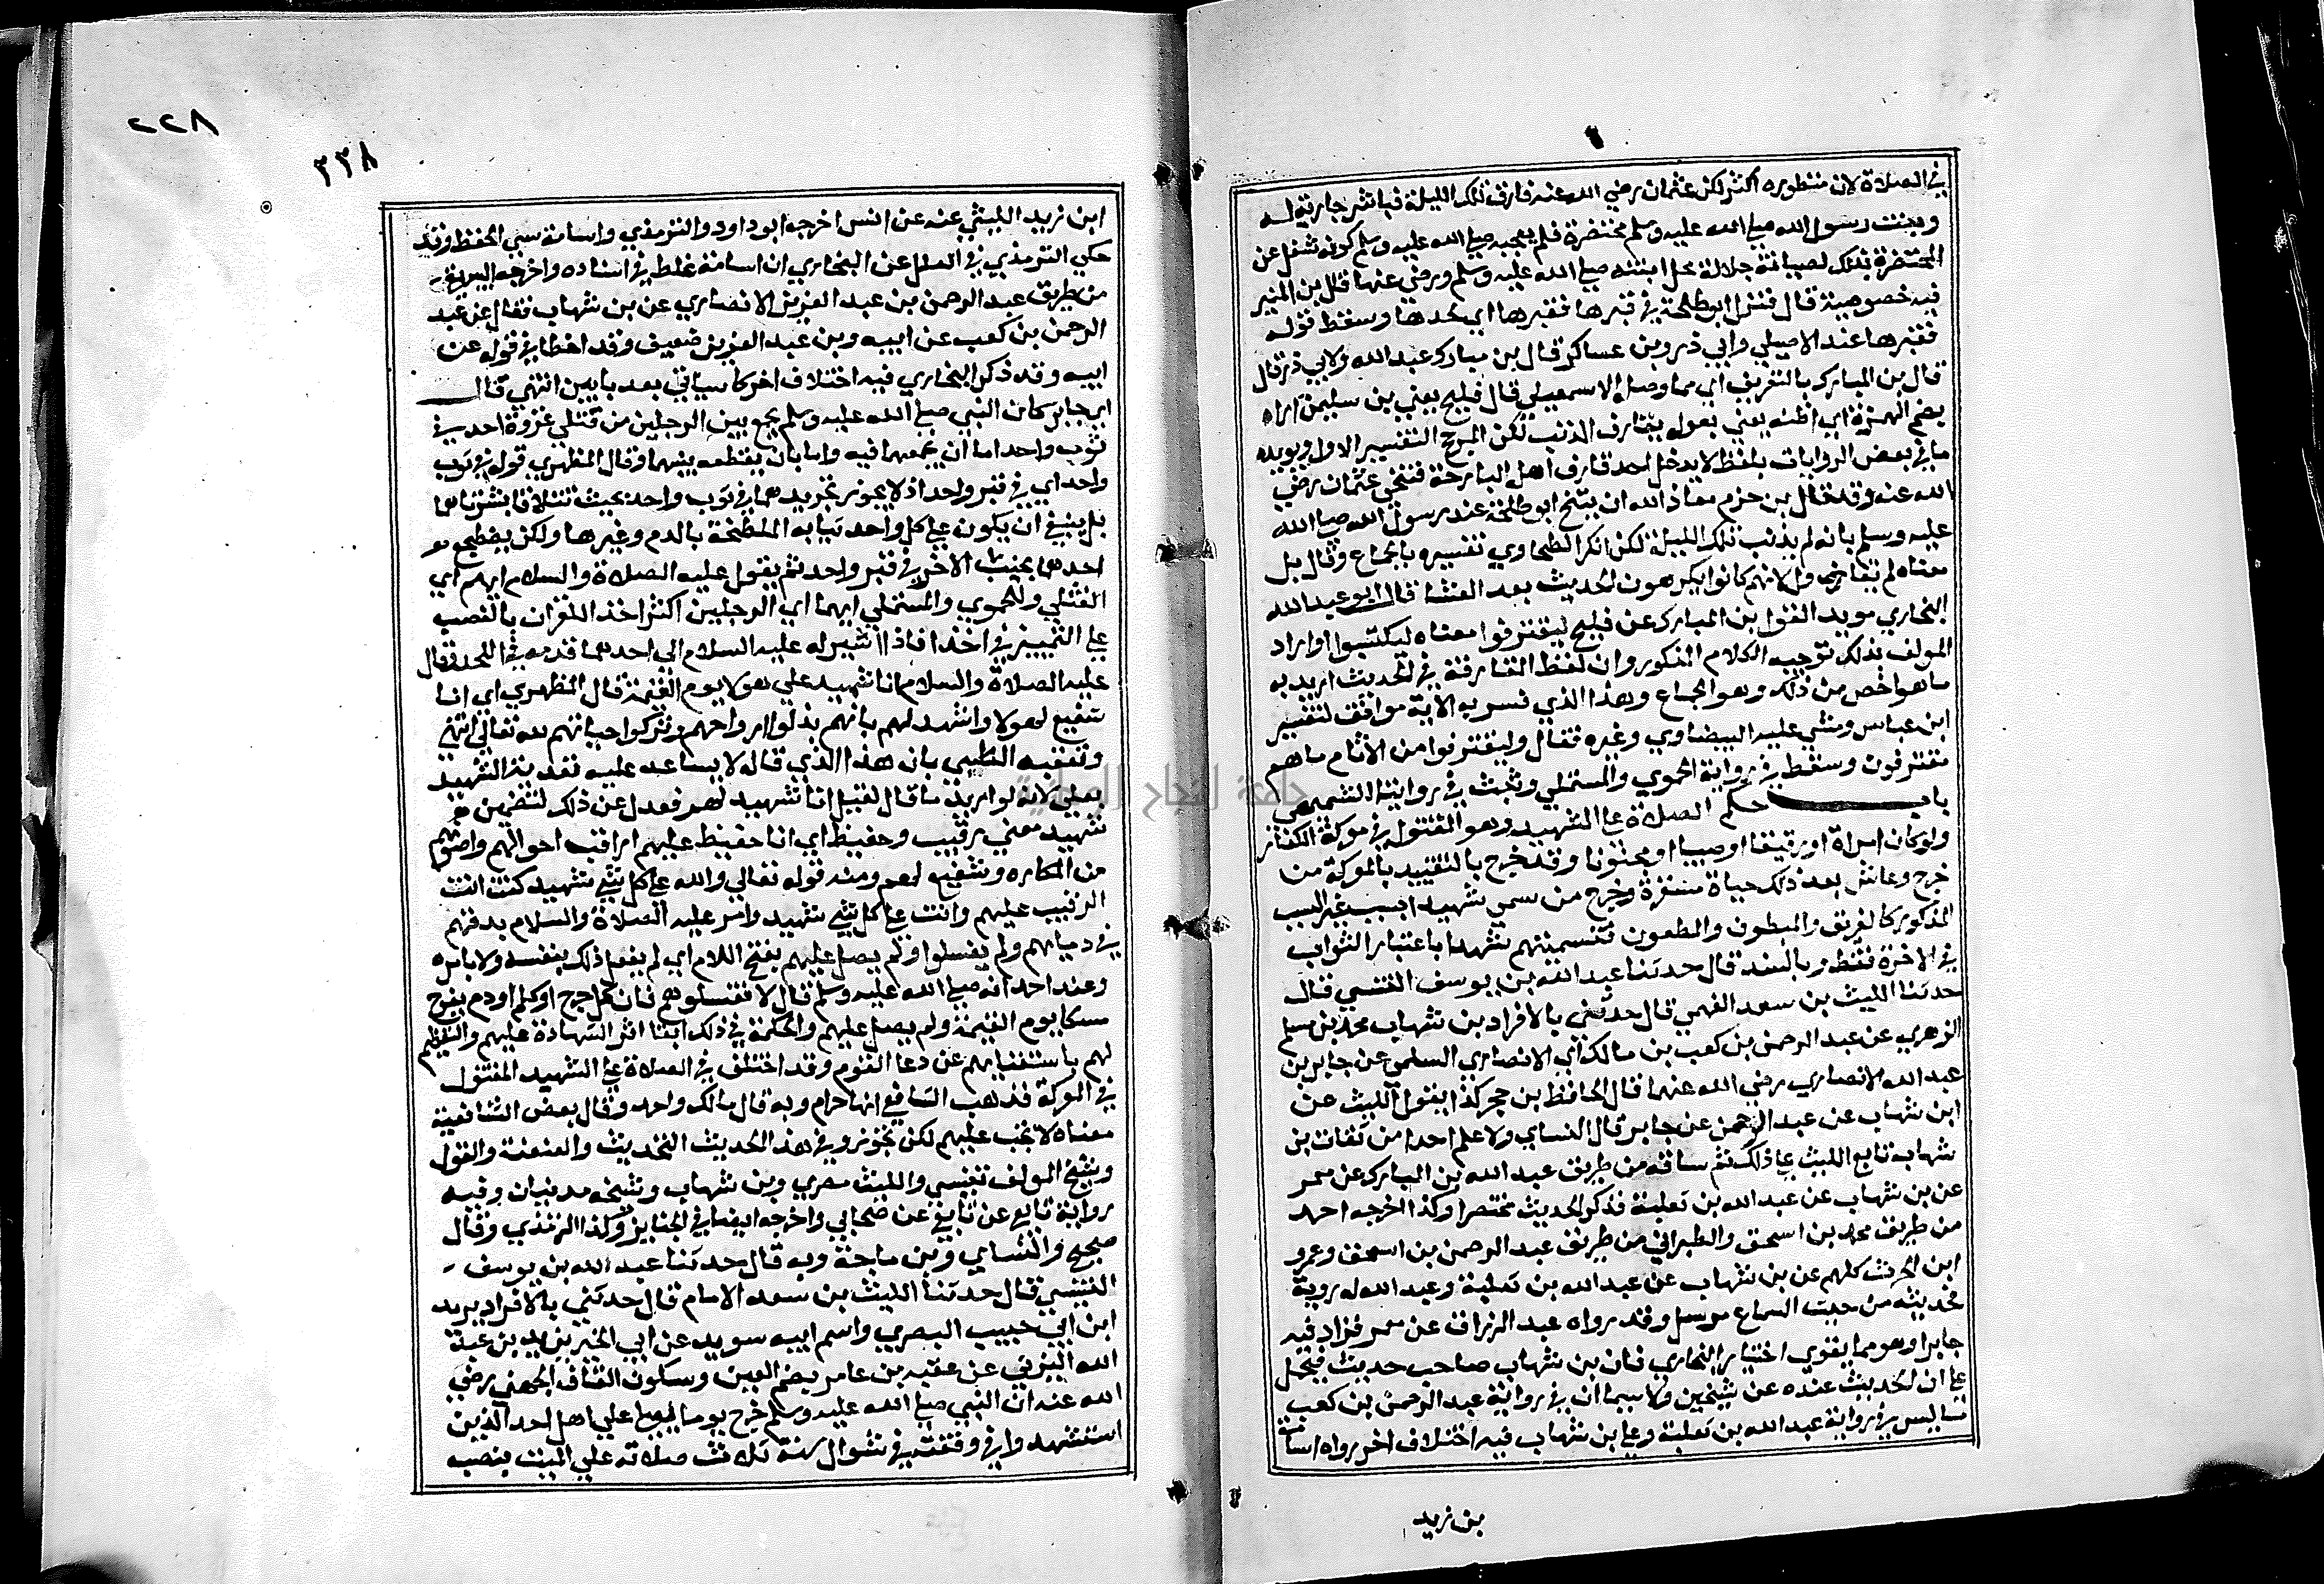 في الصلاة لان منظوره اكثر لكن عثمان رضي الله عنه قارف تلك الليلة فباشر جارية له
وبنت رسول الله صلي الله عليه وسلم محتضرة فلم يعجبه صلي الله عليه وسلم كونه شغل عن
المحتضرة بذلك لصيانة جلالة محل ابنته صلي الله عليه وسلم ورضي عنها قال بن المنير
فيه خصوصية قال فنزل ابو طلحة في قبرها فقبرها اي لحدها وسقط قوله
فقبرها عند الاصيلي وابي ذر وبن عساكر قال بن مبارك عبد الله ولابي ذر قال
قال بن المبارك بالتعريف اي مما وصله الاسمعيلي قال فليح يعني بن سليمن اراه
بضم الهمزة اي اظنه يعني بقوله يقارف الذنب لكن المرجح التفسير الاول ويويده
ما في بعض الروايات بلفظ لا يدخل احد قارف اهله البارحة فتنحي عثمان رضي
الله عنه وقد قال بن حزم معاذ الله ان يتبجح ابو طلحة عند رسول الله صلي الله
عليه وسلم بانه لم يذنب تلك الليلة لكن انكر الطحاوي تفسيره بالجماع وقال بل
معناه لم يقاول لانهم كانوا يكرهون الحديث بعد العشا قال ابو عبد الله
البخاري مويد القول بن المبارك عن فليح ليقترفوا معناه ليكتسبوا او اراد
المولف بذلك توجيه الكلام المذكور وان لفظ المقارفة في الحديث اريد به
ما هو اخص من ذلك وهو الجماع وهذا الذي فسر به الاية موافق لتفسير
ابن عباس ومشي عليه البيضاوي وغيره فقال وليقترفوا من الاثام ما هم
مقترفون وسقط في رواية الحموي والمستملي وثبت في رواية الكشميهني
باب حكم الصلاة علي الشهيد وهو المقتول في معركة الكفار
ولو كان امراة او رقيقا او صبيا او مجنونا وقد خرج بالتقييد بالمعركة من
خرج وعاش بعد ذلك حياة مستقرة وخرج من سمي شهيدا بسبب غير السبب
المذكور كالغريق والمبطون والمطعون فتسميتهم شهدا باعتبار الثواب
في الاخرة فقط وبالسند قال حدثنا عبد الله بن يوسف التنيسي قال
حدثنا الليث بن سعد الفهمي قال حدثني بالافراد بن شهاب محمد بن مسلم
الزهري عن عبد الرحمن بن كعب بن مالك ابي الانصاري السلمي عن جابر بن
عبد الله الانصاري رضي الله عنهما قال الحافظ بن حجر كذا يقول الليث عن
ابن شهاب عن عبد الرحمن عن جابر قال النساي ولا اعلم احدا من ثقات بن
شهاب تابع الليث علي ذلك ثم ساقه من طريق عبد الله بن المبارك عن معمر
عن بن شهاب عن عبد الله بن ثعلبة فذكر الحديث مختصرا وكذا اخرجه احمد
من طريق محمد بن اسحق والطبراني من طريق عبد الرحمن بن اسحق وعمرو
ابن الحرث كلهم عن بن شهاب عن عبد الله بن ثعلبة وعبد الله له روية
فحديثه من حيث السماع مرسل وقد رواه عبد الرزاق عن معمر فزاد فيه
جابرا وهو مما يقوي اختيار البخاري فان بن شهاب صاحب حديث فيحمل
علي ان الحديث عنده عن شيخين ولا سيما ان في رواية عبد الرحمن بن كعب
ما ليس في رواية عبد الله بن ثعلبة وعلي بن شهاب فيه اختلاف اخر رواه اسامة
بن زيد
٢٢٨
٣٣٨
ابن زيد الليثي عنه عن انس اخرجه ابو داود والترمذي واسامة سيي الحفظ وقد
حكي الترمذي في العلل عن البخاري ان اسامة غلط في اسناده واخرجه البيهقي
من طريق عبد الرحمن بن عبد العزيز الانصاري عن بن شهاب فقال عن عبد
الرحمن بن كعب عن ابيه وبن عبد العزيز ضعيف وقد اخطا في قوله عن
ابيه وقد ذكر البخاري فيه اختلاف اخر كما سياتي بعد بابين انتهي قال
اي جابر كان النبي صلي الله عليه وسلم يجمع بين الرجلين من قتلي غزوة احد في
ثوب واحد اما ان يجمعهما فيه واما بان يقطعه بينهما وقال المظهري قوله في ثوب
واحد اي في قبر واحد اذ لا يجوز تجريدهما في ثوب واحد بحيث تتلاقا بشرتاهما
بل ينبغي ان يكون علي كل واحد ثيابه الملطخة بالدم وغيرها ولكن يضطجع
احدهما بجنب الاخر في قبر واحد ثم يقول عليه الصلاة والسلام ايهم اي
القتلي وللحموي والمستملي ايهما اي الرجلين اكثر اخذا للقران بالنصب
علي التمييز في اخذا فاذا اشير له عليه السلام الي احدهما قدمه في اللحد وقال
عليه الصلاة والسلام انا شهيد علي هولا يوم القيمة قال المظهري اي انا
شفيع لهولا واشهد لهم بانهم بذلوا ارواحهم وتركوا حياتهم لله تعالي انتهي
وتعقبه الطيبي بان هذا الذي قاله لا يساعد عليه تعدية الشهيد
بعلي لانه لو اريد ما قال لقيل انا شهيد لهم فعدل عن ذلك لتضمين
شهيد معني رقيب وحفيظ اي انا حفيظ عليهم اراقب احوالهم واصونهم
من المكاره وشفيع لهم ومنه قوله تعالي والله علي كل شي شهيد كنت انت
الرقيب عليهم وانت علي كل شي شهيد وامر عليه الصلاة والسلام بدفنهم
في دمايهم ولم يغسلوا ولم يصل عليهم بفتح اللام اي لم يفعل ذلك بنفسه ولا بامره
وعند احمد انه صلي الله عليه وسلم قال لا تغسلوهم فان كل جرح او كلم او دم يفوح
مسكا يوم القيمة ولم يصل عليهم والحكمة في ذلك ابقا اثر الشهادة عليهم والتعظيم
لهم باستغنايهم عن دعا القوم وقد اختلف في الصلاة علي الشهيد المقتول
في المعركة فذهب الشافعي انها حرام وبه قال مالك واحمد وقال بعض الشافعية
معناه لا تجب عليهم لكن تجوز وفي هذا الحديث التحديث والعنعنة والقول
وشيخ المولف تنيسي والليث مصري وبن شهاب وشيخه مدنيان وفيه
رواية تابعي عن تابعي عن صحابي واخرجه ايضا في الجنايز وكذا الترمذي وقال
صحيح والنساي وبن ماجة وبه قال حدثنا عبد الله بن يوسف
التنيسي قال حدثنا الليث بن سعد الامام قال حدثني بالافراد يزيد
ابن ابي حبيب البصري واسم ابيه سويد عن ابي الخير يزيد بن عبد
الله اليزني عن عقبه بن عامر بضم العين وسكون القاف الجهني رضي
الله عنه ان النبي صلي الله عليه وسلم خرج يوما فصلي علي اهل احد الذين
استشهدوا في وقعته في شوال سنة ثلاث صلاته علي الميت بنصب
جامعة النجاح الوطنية